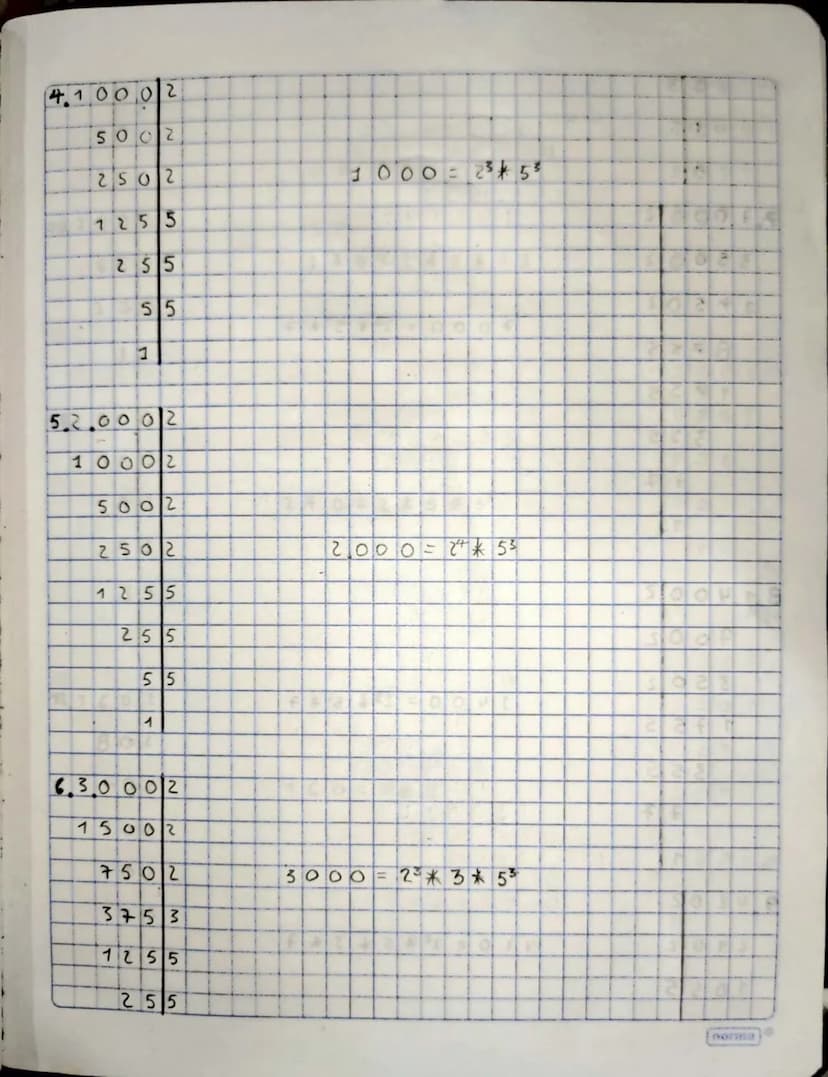 4. 1000 | 2
500 | 2
250 | 2
1000 = 2³ * 5³
125 | 5
25 | 5
5 | 5
1
5. 2.000 | 2
1000 | 2
500 | 2
250 | 2
2.000 = 2⁴ * 5³
125 | 5
25 | 5
5 | 5
1
6. 3.000 | 2
1500 | 2
750 | 2
3000 = 2³ * 3 * 5³
375 | 3
125 | 5
25 | 5
norma